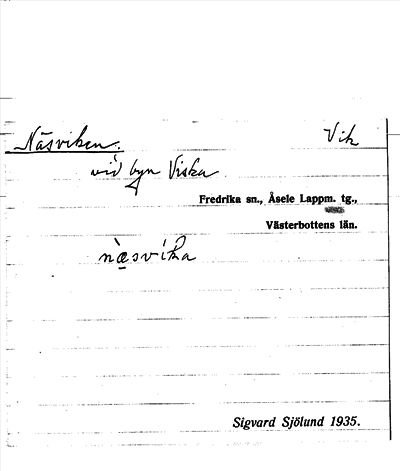 Näsviken. Vik
vid byn Viska
Fredrika sn., Åsele Lappm. tg.,
Västerbottens län.
næsvika
Sigvard Sjölund 1935.